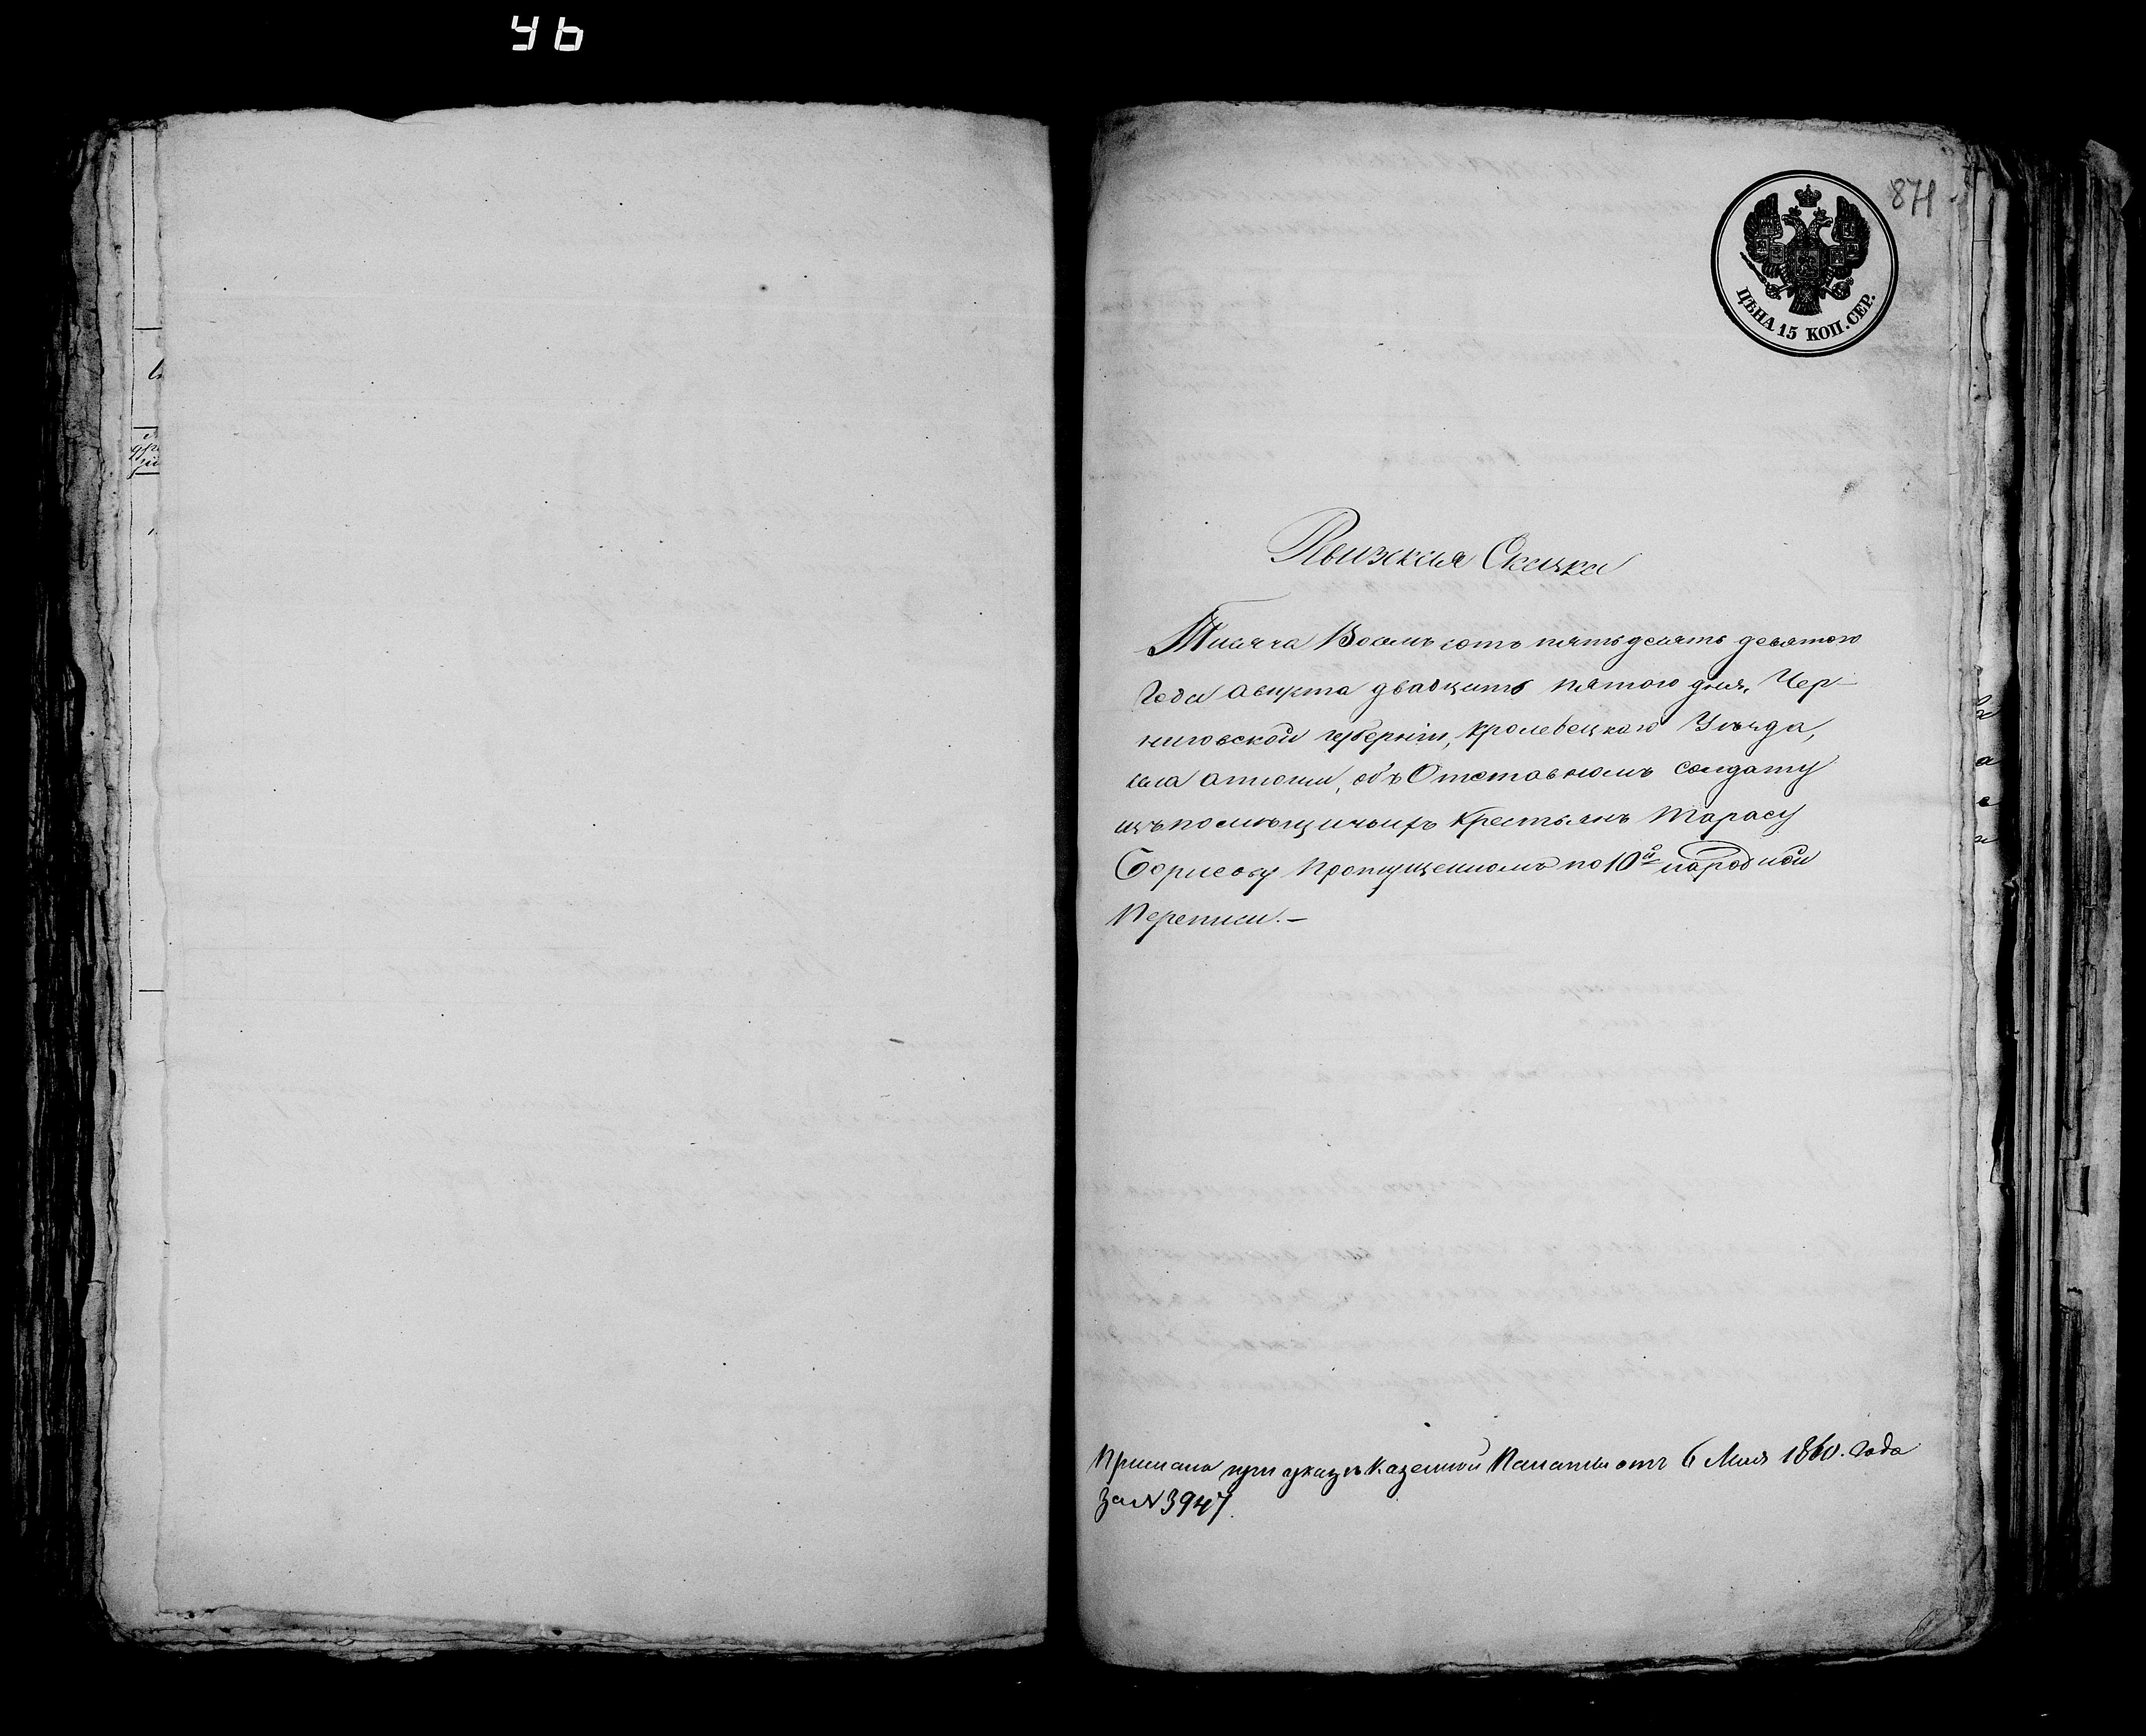 46
871
ЦѢНА 15 КОП. СЕР.
Ревизская Сказка
Тисяча Восемь сотъ пятьдесять девятого
Года Августа двадцать пятого дня, Чер-
ниговской губерніи, Кролевецкаго Уѣзда,
села объ Отставномъ солдату
изъ помѣщичьихъ Крестьянъ Тарасу
Борисову пропущенномъ по 10й народной
Переписи.-
Прислана при указѣ Казенной Палаты отъ 6 Мая 1860. Года
За № 3947.